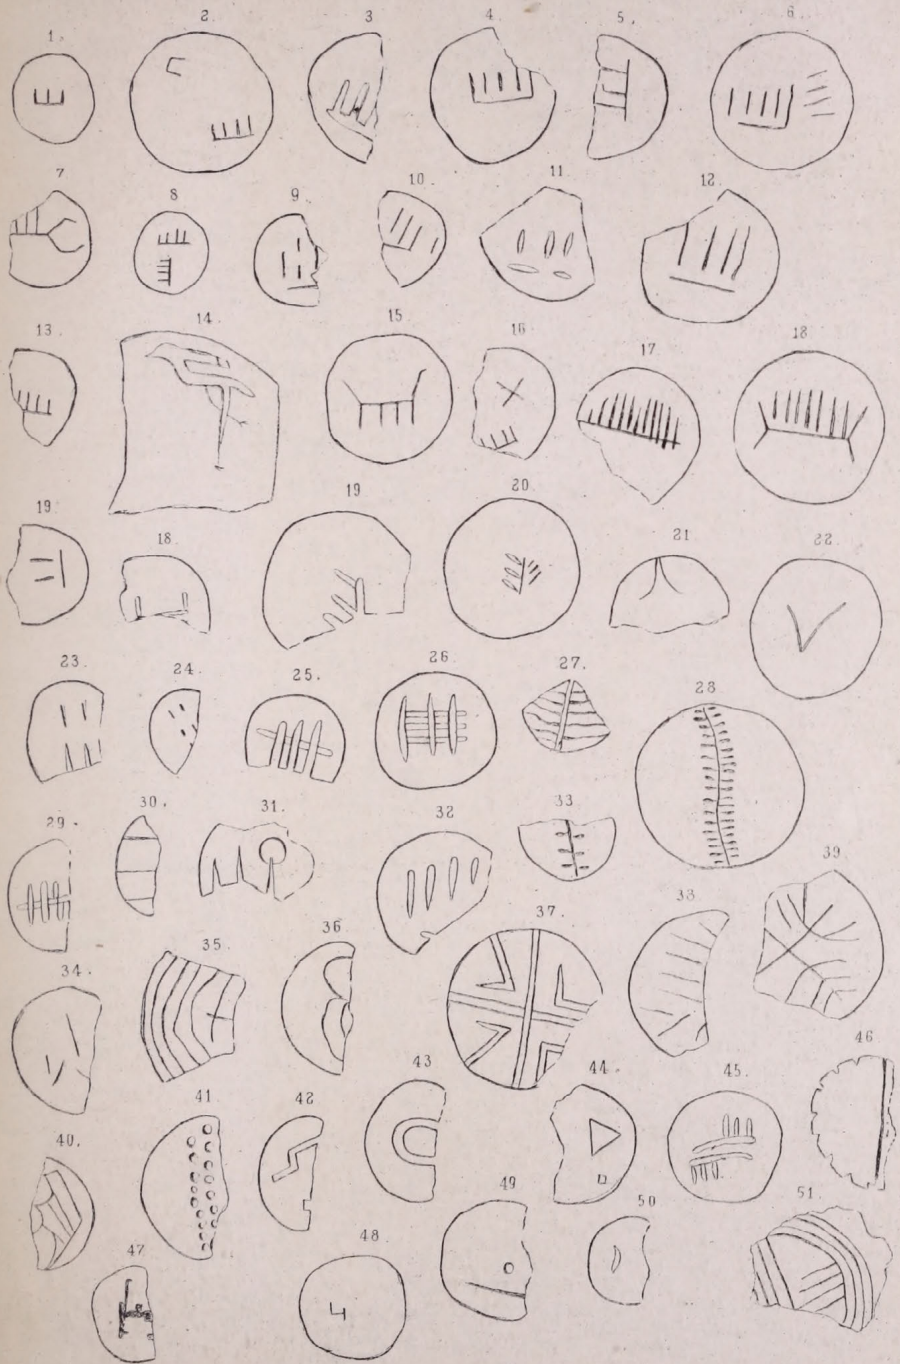 1. 2 3 4 5. 6
7 8 9 10. 11 12
13. 14 15 16 17 18
19. 18. 19 20 21 22
23. 24. 25. 26 27. 28
29. 30. 31. 32 33
34. 35 36 37. 38 39
40. 41 42 43 44. 45 46
47 48 49 50 51